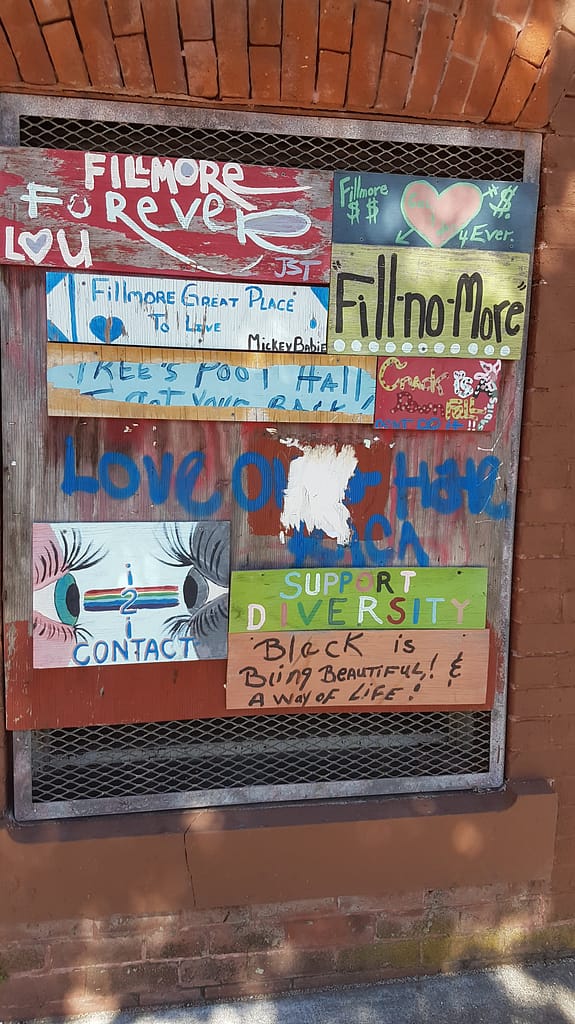 FILLMORE
FOREVER
LOU
JST
Fillmore
$$
$
4 Ever.
"Fill-no-More"
Fillmore Great Place
To Live
Mickey Babie
TREE'S POOL HALL
I GOT YOUR BACK!
Crack is
DON'T DO IT!!
LOVE
Hate
i
2
i
CONTACT
SUPPORT
DIVERSITY
Black is
Biing Beautiful,! &
A way of Life!